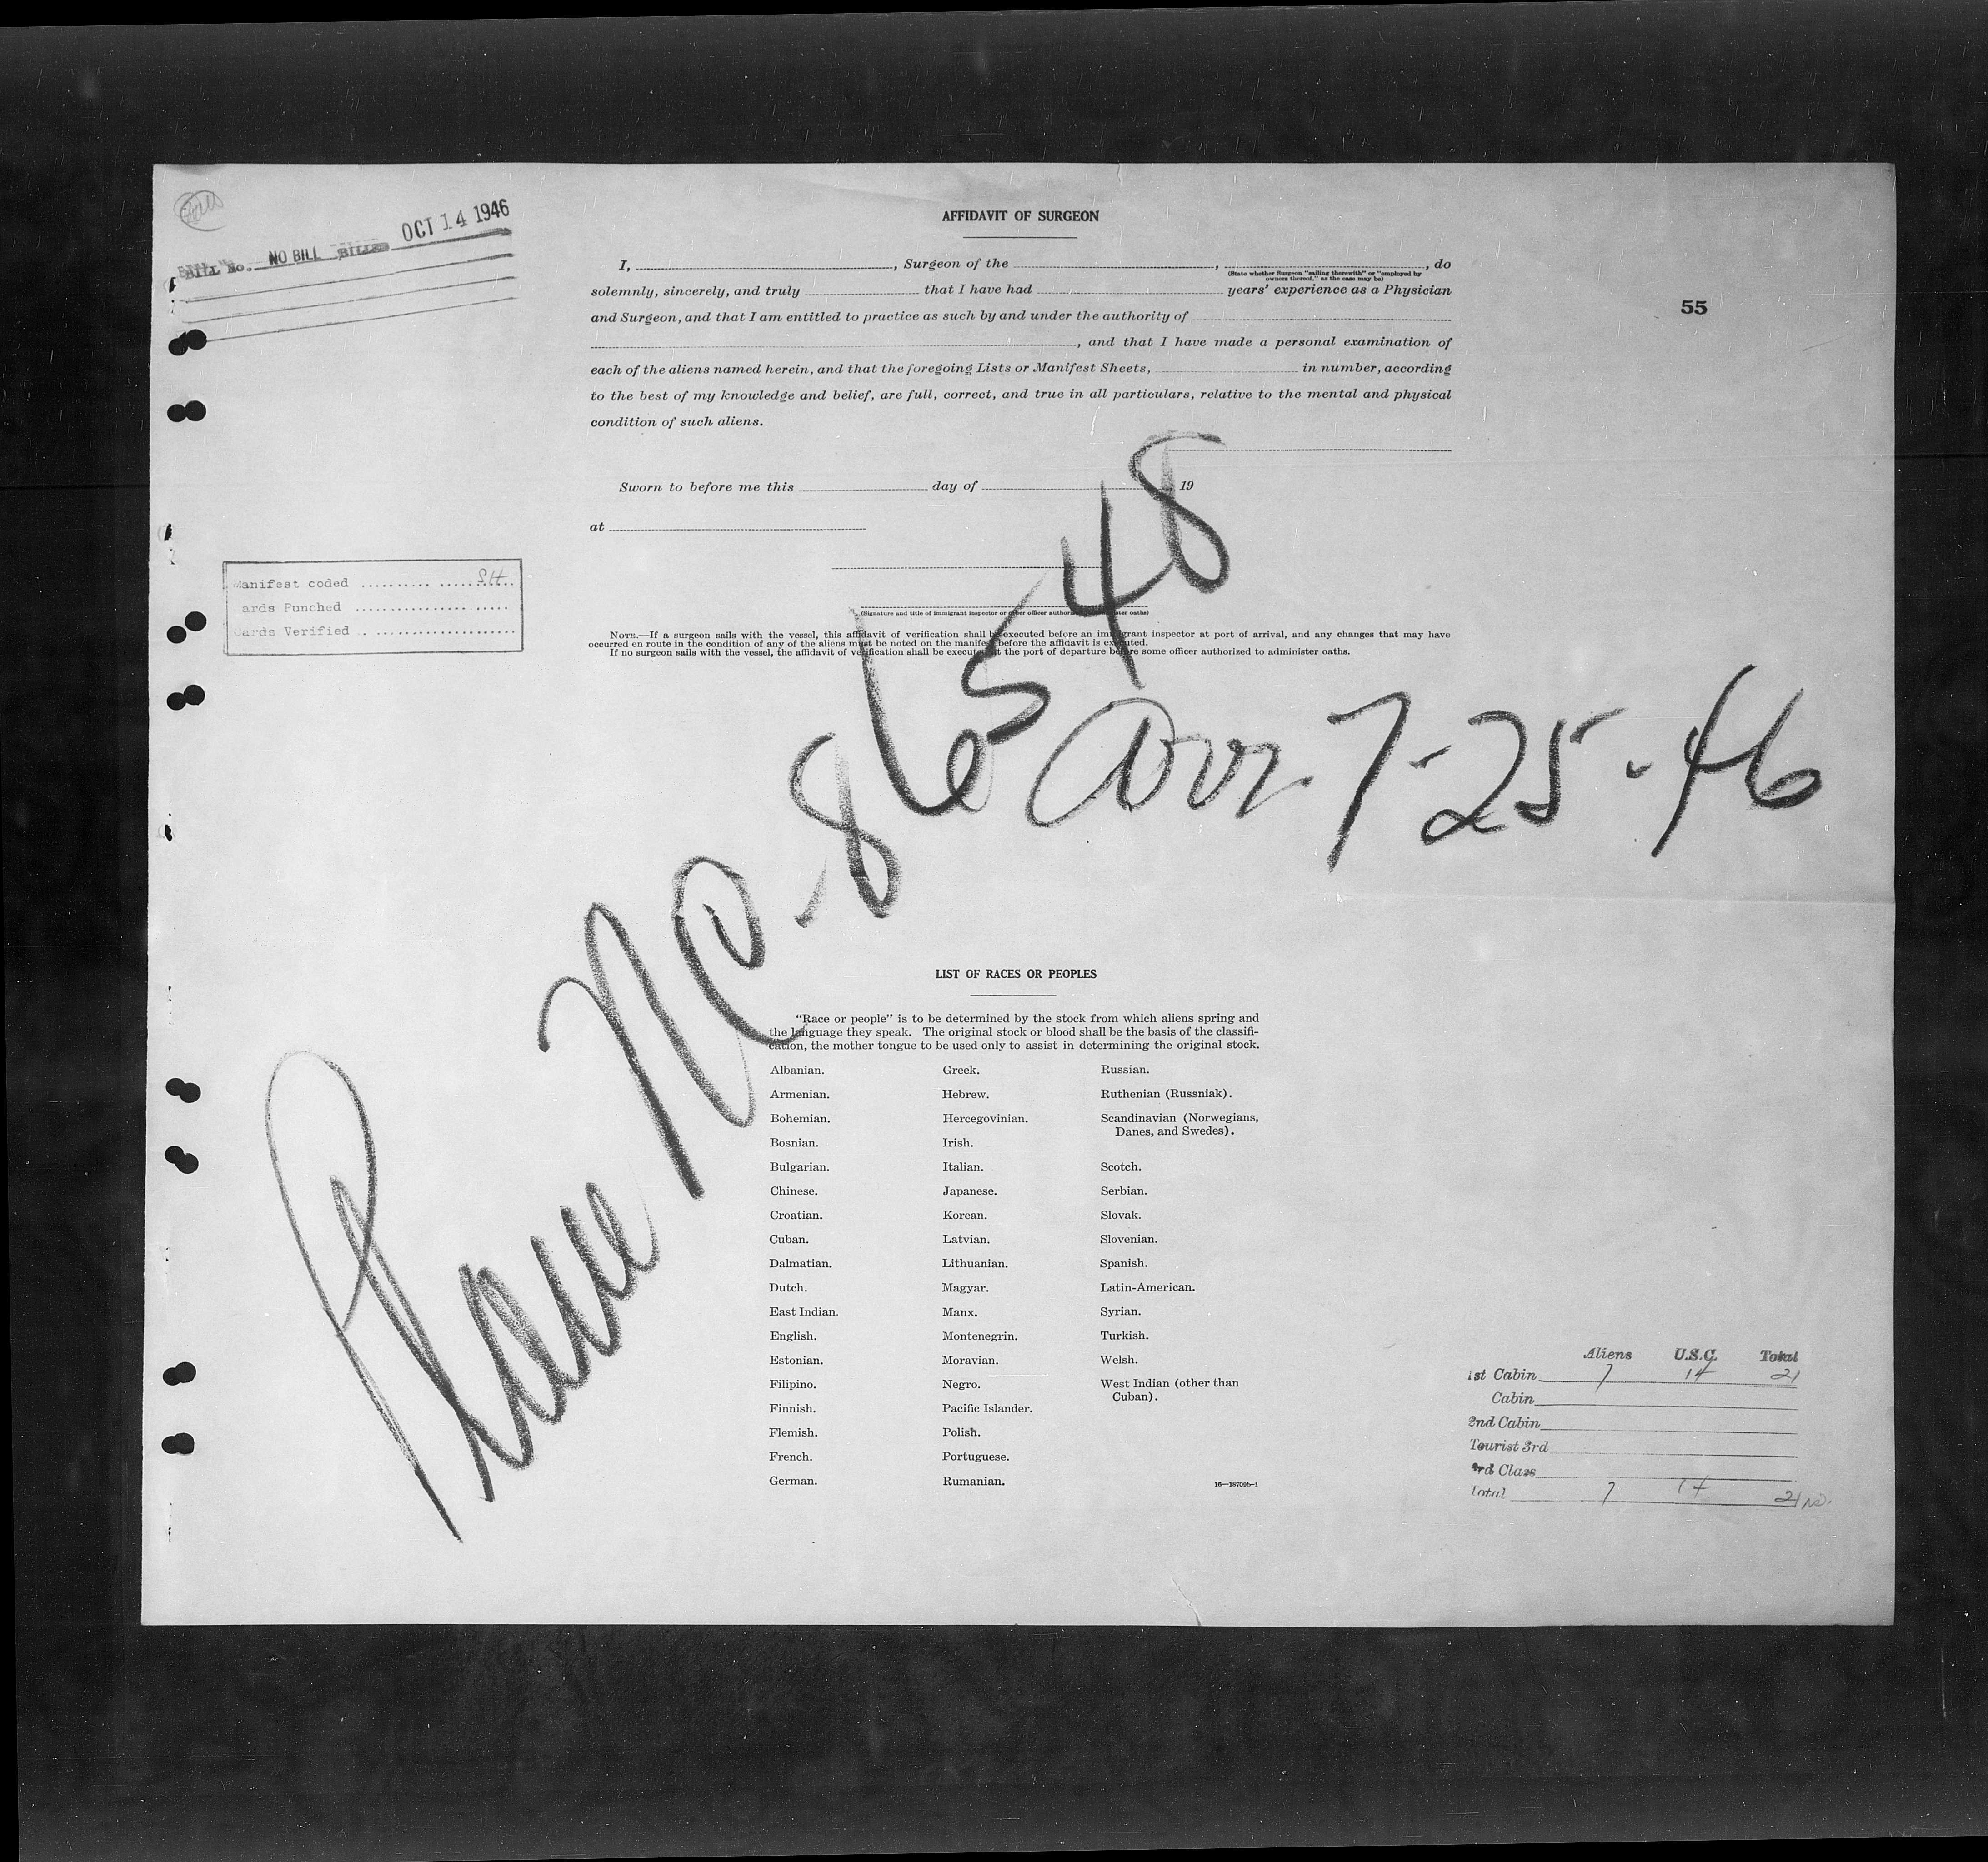 OCT 14 1946
BILL No. NO BILL BILLED
AFFIDAVIT OF SURGEON
I, , Surgeon of the , , do
(State whether Surgeon "sailing therewith" or "employed by
owners thereof," as the case may be)
solemnly, sincerely, and truly that I have had years' experience as a Physician
and Surgeon, and that I am entitled to practice as such by and under the authority of
, and that I have made a personal examination of
each of the aliens named herein, and that the foregoing Lists or Manifest Sheets, in number, according
to the best of my knowledge and belief, are full, correct, and true in all particulars, relative to the mental and physical
condition of such aliens.
55
Sworn to before me this day of , 19
at
(Signature and title of immigrant inspector or other officer authorized to administer oaths)
NOTE.—If a surgeon sails with the vessel, this affidavit of verification shall be executed before an immigrant inspector at port of arrival, and any changes that may have
occurred en route in the condition of any of the aliens must be noted on the manifest before the affidavit is executed.
If no surgeon sails with the vessel, the affidavit of verification shall be executed at the port of departure before some officer authorized to administer oaths.
Manifest coded .......... SH
ards Punched ..........
Cards Verified ..........
Plane NC-86548
Arr. 7-25-46
LIST OF RACES OR PEOPLES
"Race or people" is to be determined by the stock from which aliens spring and
the language they speak. The original stock or blood shall be the basis of the classifi-
cation, the mother tongue to be used only to assist in determining the original stock.
Albanian.
Armenian.
Bohemian.
Bosnian.
Bulgarian.
Chinese.
Croatian.
Cuban.
Dalmatian.
Dutch.
East Indian.
English.
Estonian.
Filipino.
Finnish.
Flemish.
French.
German.
Greek.
Hebrew.
Hercegovinian.
Irish.
Italian.
Japanese.
Korean.
Latvian.
Lithuanian.
Magyar.
Manx.
Montenegrin.
Moravian.
Negro.
Pacific Islander.
Polish.
Portuguese.
Rumanian.
Russian.
Ruthenian (Russniak).
Scandinavian (Norwegians,
Danes, and Swedes).
Scotch.
Serbian.
Slovak.
Slovenian.
Spanish.
Latin-American.
Syrian.
Turkish.
Welsh.
West Indian (other than
Cuban).
16—18709b-1
Aliens U.S.C. Total
1st Cabin 7 14 21
Cabin
2nd Cabin
Tourist 3rd
3rd Class
Total 7 14 21